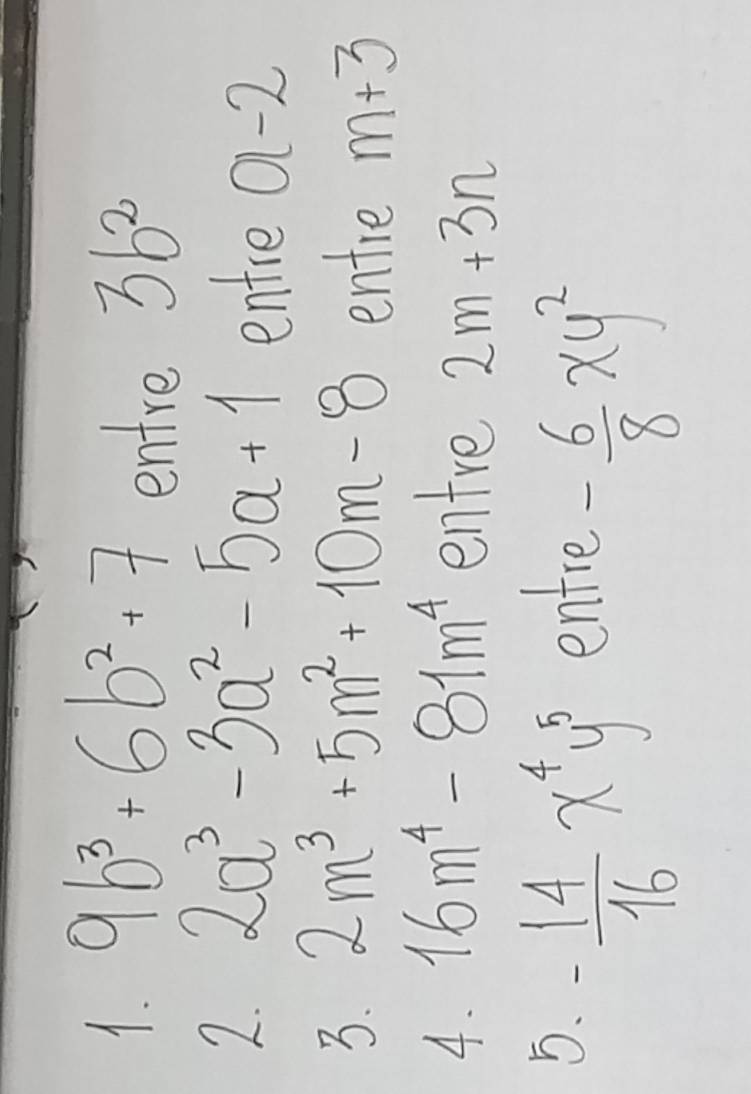 1. 9b³ + 6b² + 7 entre 3b²
2. 2a³ - 3a² - 5a + 1 entre a - 2
3. 2m³ + 5m² + 10m - 8 entre m + 3
4. 16m⁴ - 81m⁴ entre 2m + 3n
5. - 14/16 x⁴y⁵ entre - 6/8 xy²